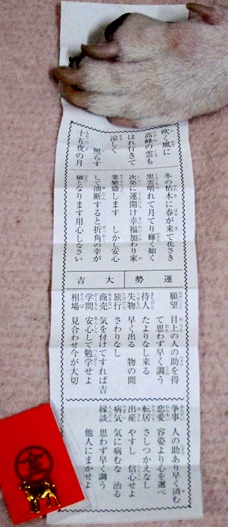 吹く風に
高峰の雲も
はれ行きて
涼しく
照らす
十五夜の月
冬の枯木に春が来て花さき
黒雲晴れて月てり輝く如く
次第に運開け幸福加わり家
業繁盛します しかし安心
して油断すると折角の幸が
禍となります用心しなさい
運勢 大吉
願望 目上の人の助を得
て思わず早く調う
待人 たよりなし来る
失物 早く出る 物の間
旅行 さわりなし
商売 気を付けてすれば吉
学問 安心して勉学せよ
相場 見合わせ今が大切
争事 人の助あり早く済む
恋愛 容姿より心を選べ
転居 さしつかえなし
出産 やすし 信心せよ
病気 気に病むな 治る
縁談 思わず早く調う
他人にまかせよ